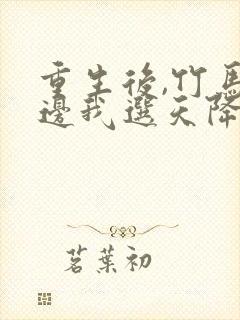 重生後,竹馬
邊我選天降
茗葉初